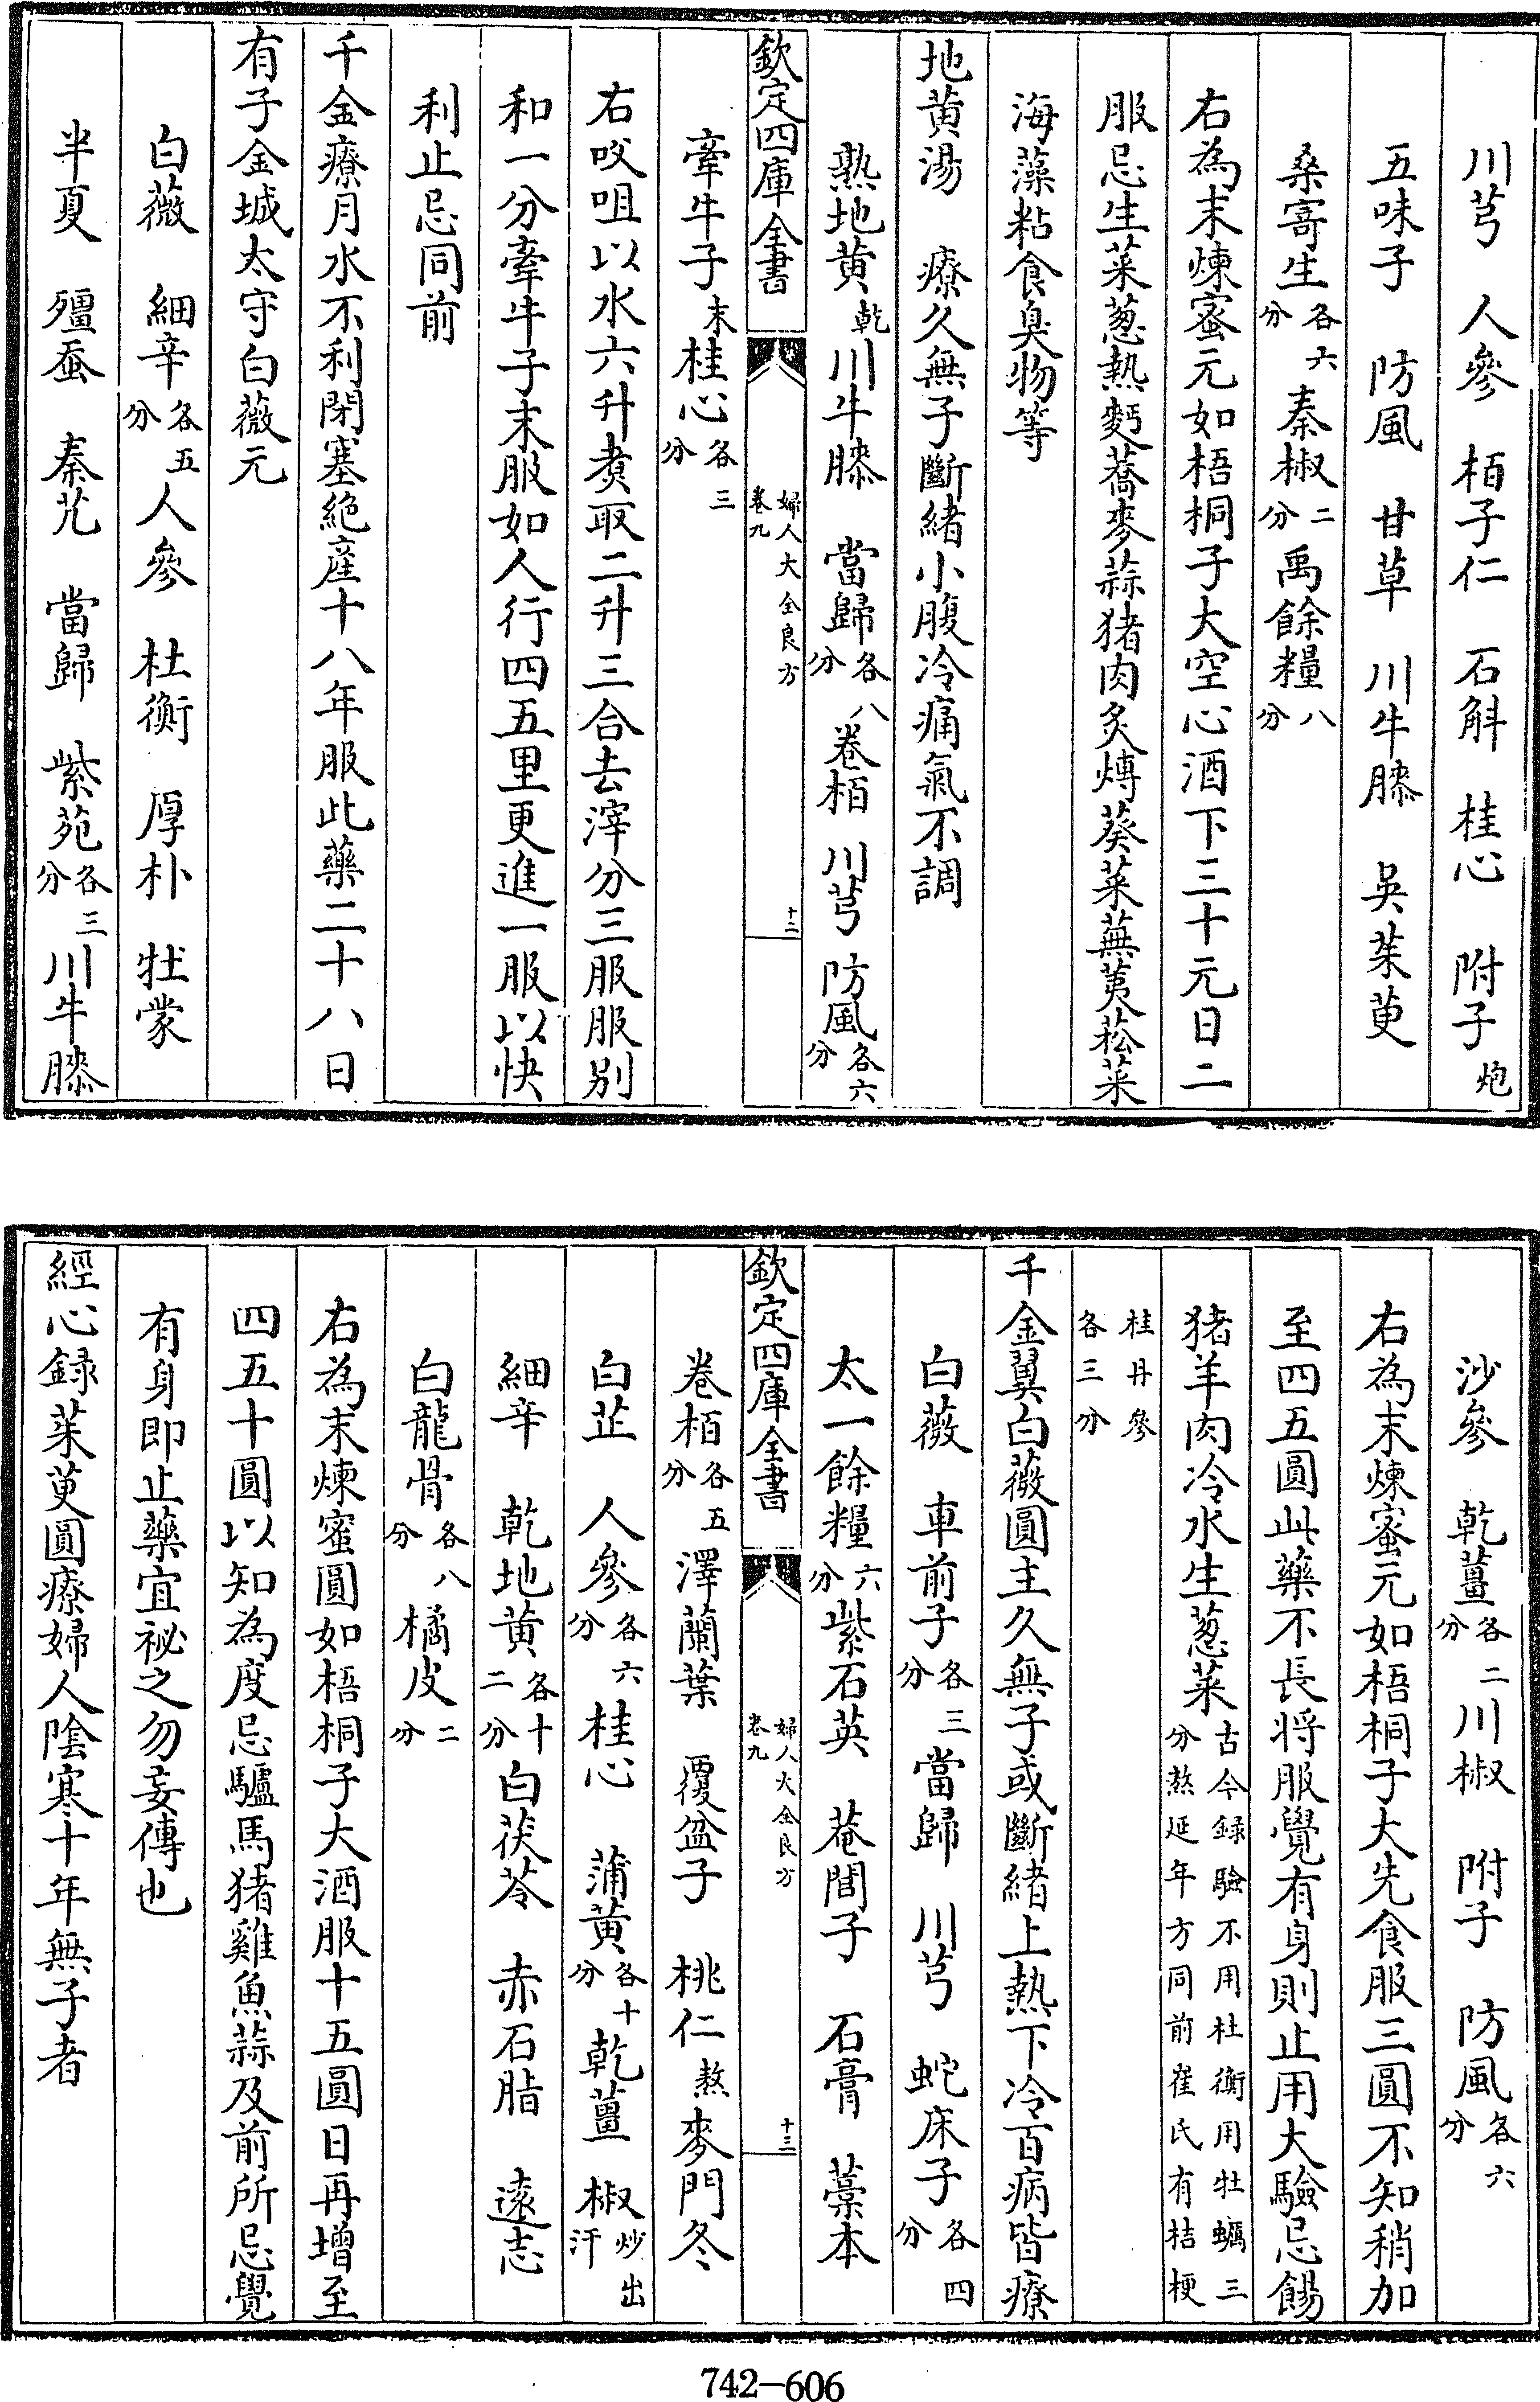 川芎　人參　栢子仁　石斛　桂心　附子炮
五味子　防風　甘草　川牛膝　吳茱萸
桑寄生各六分　秦椒二分　禹餘糧八分
右為末煉蜜元如梧桐子大空心酒下三十元日二
服忌生菜葱熱麪蕎麥蒜猪肉炙煿葵菜蕪荑菘菜
海藻粘食臭物等
地黄湯　療久無子斷緒小腹冷痛氣不調
熟地黄乾　川牛膝　當歸各八分　卷栢　川芎　防風各六分
欽定四庫全書　婦人大全良方卷九　十二
牽牛子末　桂心各三分
右㕮咀以水六升煑取二升三合去滓分三服服别
和一分牽牛子末服如人行四五里更進一服以快
利止忌同前
千金療月水不利閉塞絶産十八年服此藥二十八日
有子金城太守白薇元
白薇　細辛各五分　人參　杜衡　厚朴　牡蒙
半夏　殭蚕　秦艽　當歸　紫苑各三分　川牛膝
沙參　乾薑各二分　川椒　附子　防風各六分
右為末煉蜜元如梧桐子大先食服三圓不知稍加
至四五圓此藥不長将服覺有身則止用大驗忌餳
猪羊肉冷水生葱菜古今録驗不用杜衡用牡蠣三分熬延年方同前崔氏有桔梗
桂丹參各三分
千金翼白薇圓主久無子或斷緒上熱下冷百病皆療
白薇　車前子各三分　當歸　川芎　蛇床子各四分
太一餘糧六分　紫石英　菴䕡子　石膏　藁本
欽定四庫全書　婦人大全良方卷九　十三
卷栢各五分　澤蘭葉　覆盆子　桃仁熬　麥門冬
白芷　人參各六分　桂心　蒲黄各十分　乾薑　椒炒出汗
細辛　乾地黄各十二分　白茯苓　赤石脂　遠志
白龍骨各八分　橘皮二分
右為末煉蜜圓如梧桐子大酒服十五圓日再增至
四五十圓以知為度忌驢馬猪雞魚蒜及前所忌覺
有身即止藥宜祕之勿妄傳也
經心録茱萸圓療婦人陰寒十年無子者
742-606